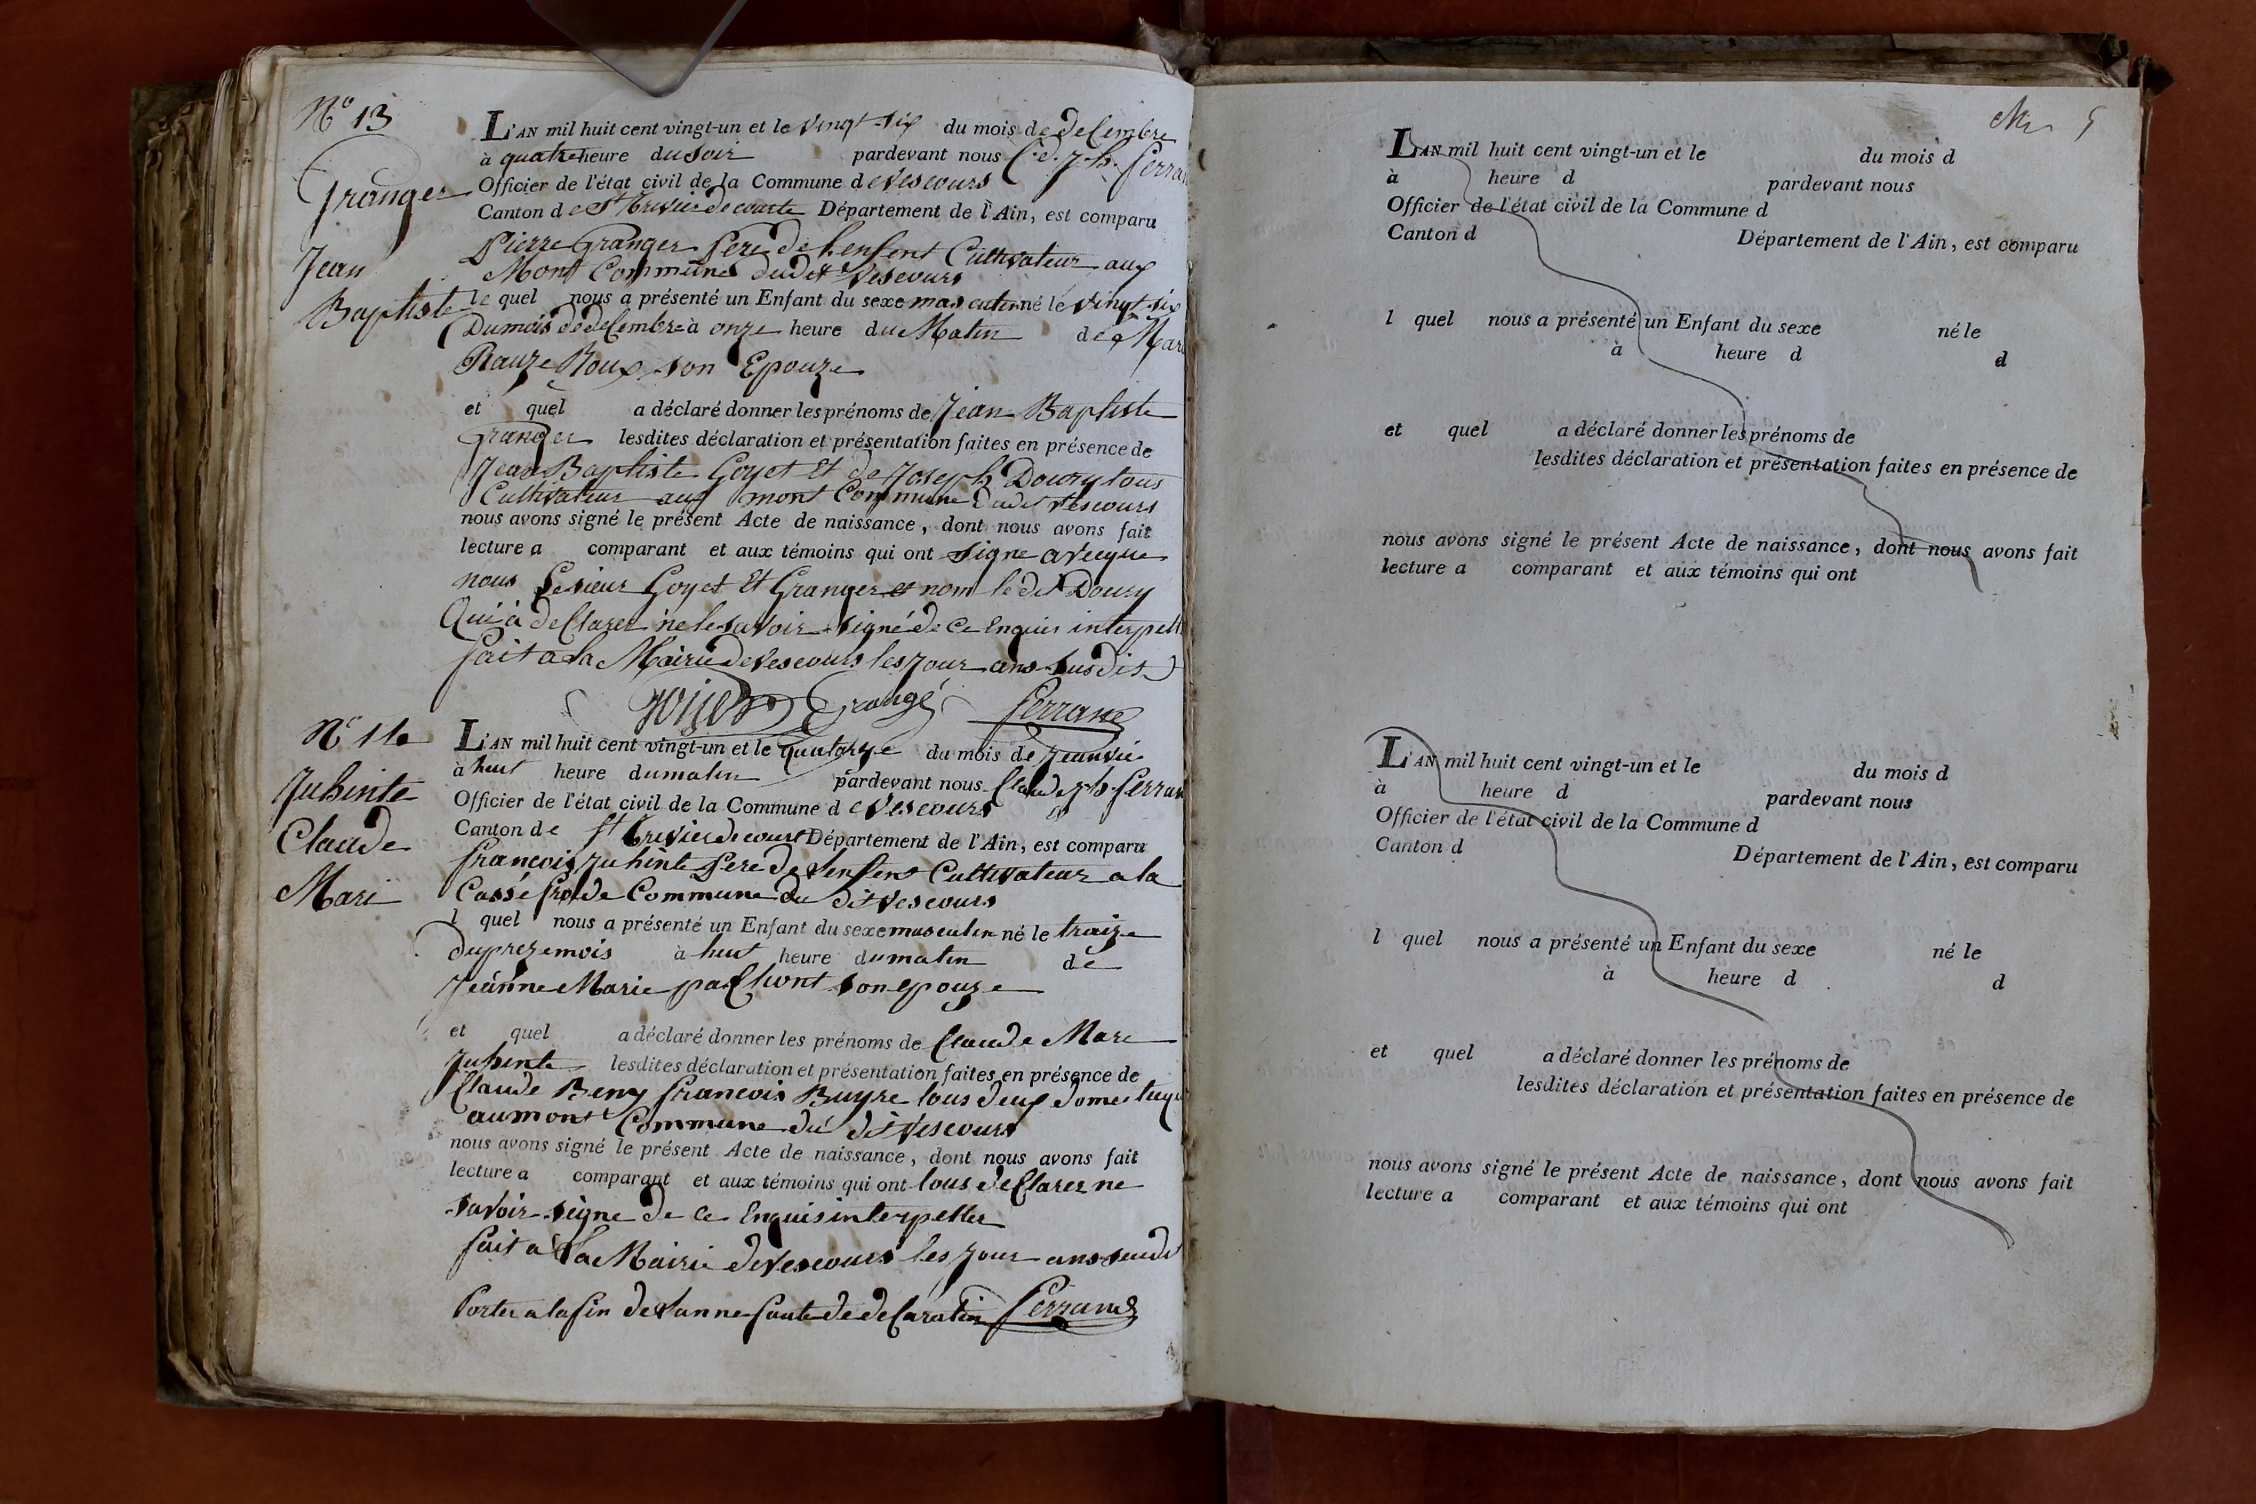 N° 13
Granger
Jean
Baptiste
L'AN mil huit cent vingt-un et le vingt-six du mois de decembre
à quatre heure du soir pardevant nous C.d. j.h. ferran
Officier de l'état civil de la Commune de vescours
Canton de St trivier de courte Département de l'Ain, est comparu
pierre Granger pere de lenfent Cultivateur aux
Mont Commune dudit Vescours
le quel nous a présenté un Enfant du sexe masculin né le vingt-six
Dumois de decembre à onze heure du Matin de Mari
Rauze Roux son Epouze
et quel a déclaré donner les prénoms de Jean Baptiste
Granger lesdites déclaration et présentation faites en présence de
Jean Baptiste Goyet Et de Joseph Doury tous
Cultivateur aux mont Commune dudit vescours
nous avons signé le présent Acte de naissance, dont nous avons fait
lecture a comparant et aux témoins qui ont signe avecque
nous Lesieur Goyet Et Granger et nom le dit Doury
Qui à declarer ne le savoir signé de ce Enquis interpell
fait a la Mairie de vescours les jour ans susdit
Goyet Grangé ferrand
N° 14
Juhinte
Claude
Mari
L'AN mil huit cent vingt-un et le quatorze du mois de jeanvié
à huit heure du matin pardevant nous Claude j.h. ferran
Officier de l'état civil de la Commune de vescours
Canton de St trivier de court Département de l'Ain, est comparu
francois Juhinte pere de lenfent Cultivateur a la
Cassé froide Commune du dit vescours
l quel nous a présenté un Enfant du sexe masculin né le traize
du prezemois à huit heure du matin de
Jeanne Marie pachont son epouze
et quel a déclaré donner les prénoms de Claude Mari
Juhinte lesdites déclaration et présentation faites en présence de
Claude Beny francois Buyre tous deux domestiqu
au mont Commune du dit vescours
nous avons signé le présent Acte de naissance, dont nous avons fait
lecture a comparant et aux témoins qui ont tous declarer ne
savoir signe de ce Enquis interpeller
fait a la Mairie de vescours les jour ans susdi
Porter a la fin de lanne faute de declaration ferrand
L'AN mil huit cent vingt-un et le du mois d
à heure d pardevant nous
Officier de l'état civil de la Commune d
Canton d Département de l'Ain, est comparu
l quel nous a présenté un Enfant du sexe né le
à heure d d
et quel a déclaré donner les prénoms de
lesdites déclaration et présentation faites en présence de
nous avons signé le présent Acte de naissance, dont nous avons fait
lecture a comparant et aux témoins qui ont
L'AN mil huit cent vingt-un et le du mois d
à heure d pardevant nous
Officier de l'état civil de la Commune d
Canton d Département de l'Ain, est comparu
l quel nous a présenté un Enfant du sexe né le
à heure d d
et quel a déclaré donner les prénoms de
lesdites déclaration et présentation faites en présence de
nous avons signé le présent Acte de naissance, dont nous avons fait
lecture a comparant et aux témoins qui ont